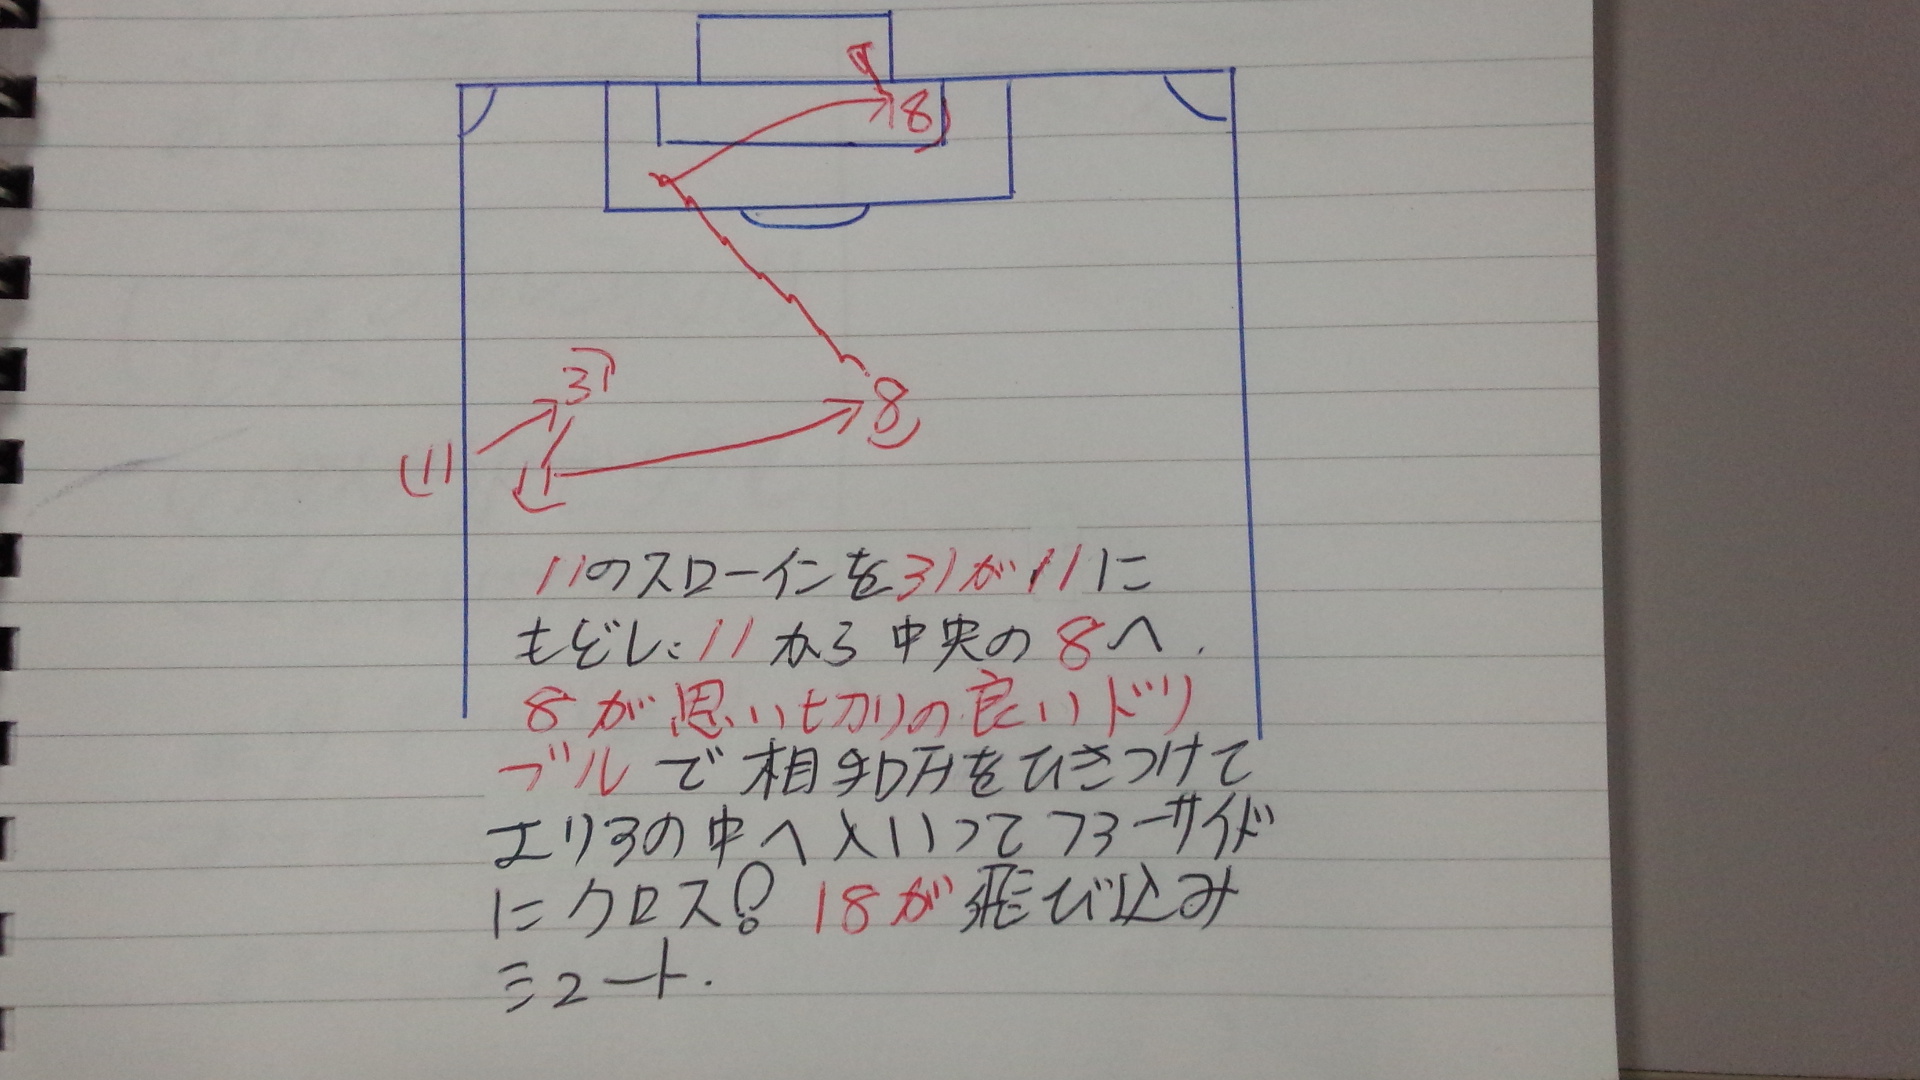 18
31
8
11
11
11のスローインを31が11に
もどし、11から中央の8へ.
8が思い切りの良いドリ
ブルで相手DFをひきつけて
エリアの中へ入いってファーサイド
にクロス! 18が飛び込み
シュート.